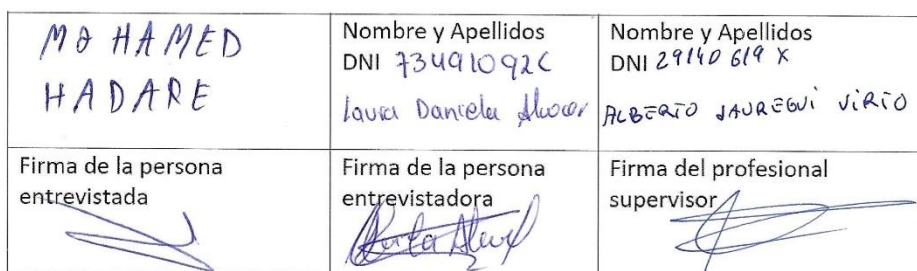 MOHAMED
HADARE
Nombre y Apellidos
DNI 73491092C
Laura Daniela
Nombre y Apellidos
DNI 29140619X
ALBERTO JAUREGUI VIRTO
Firma de la persona
entrevistada
Firma de la persona
entrevistadora
Firma del profesional
supervisor